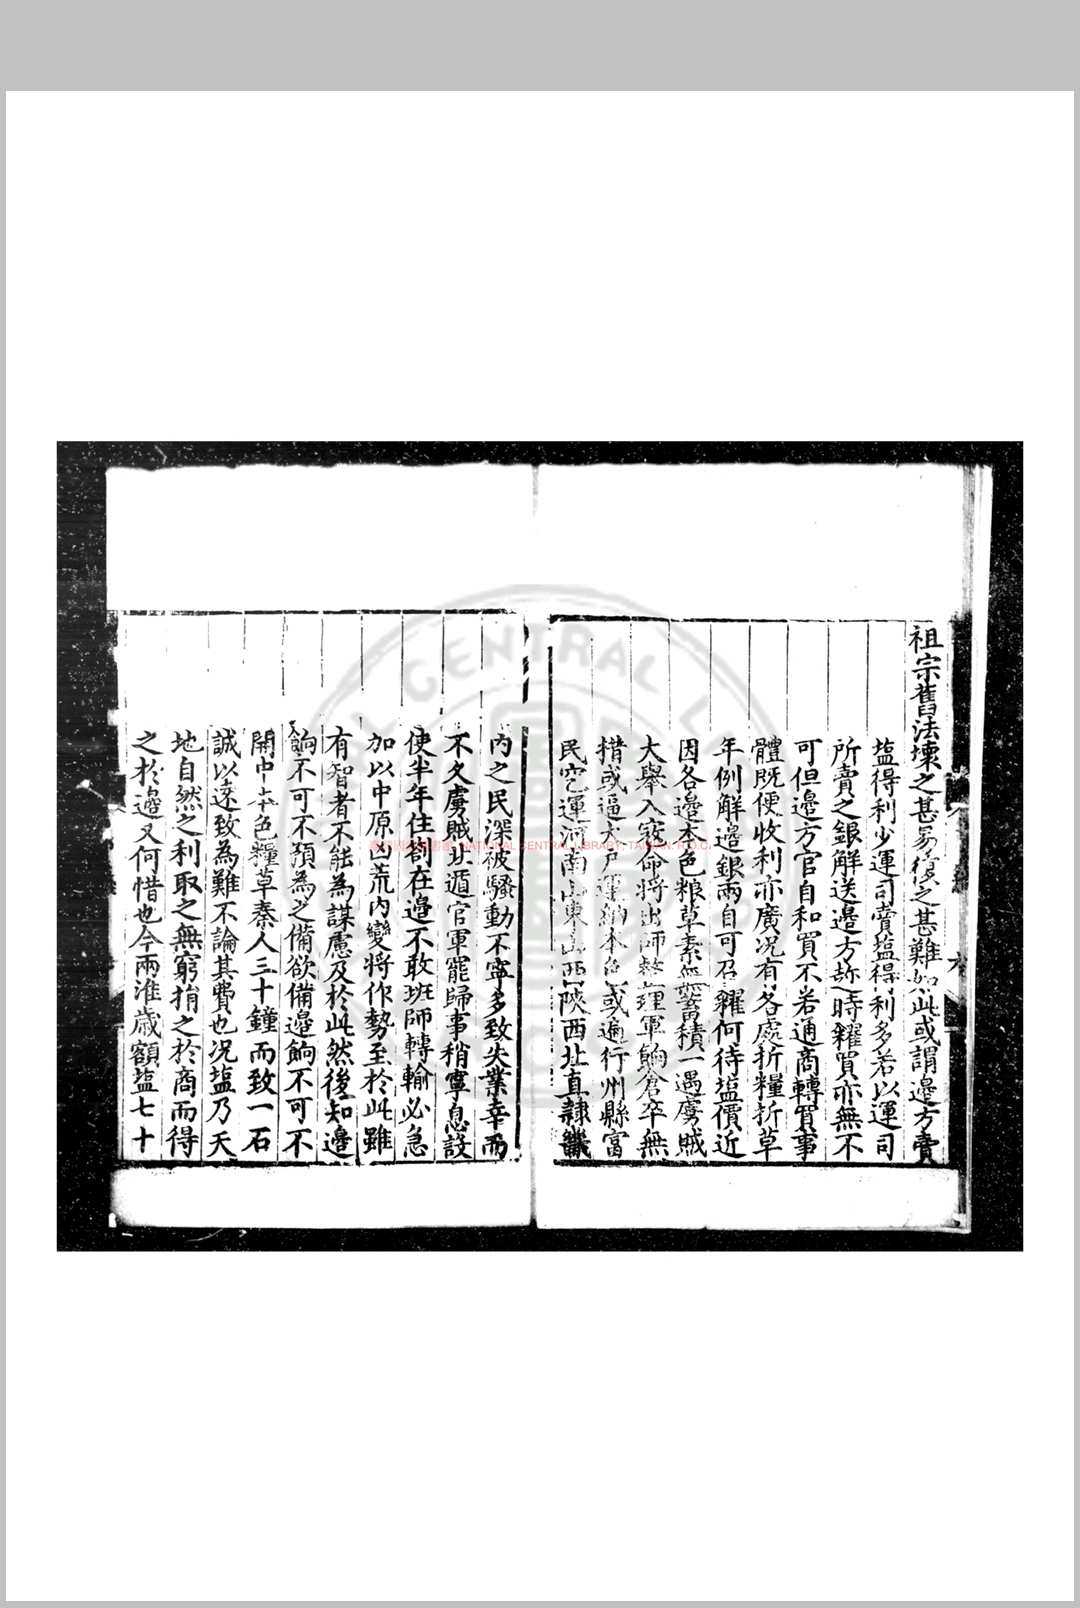 祖宗舊法壞之甚易復之甚難如此或謂邊方賣
塩得利少運司賣塩得利多若以運司
所賣之銀解送邊方趂時糴買亦無不
可但邊方官自和買不若通商轉買事
體既便收利亦廣况有各處折糧折草
年例解邊銀兩自可召糴何待塩價近
因各邊本色粮草素無蓄積一遇虜賊
大舉入寇命將出師整理軍餉倉卒無
措或逼大戶運納本色或遍行州縣富
民空運河南山東山西陝西北直隷
内之民深被騷動不寧多致失業幸而
不久虜賊北遁官軍罷歸事稍寧息設
使半年住劄在邊不敢班師轉輸必急
加以中原凶荒内變將作勢至於此雖
有智者不能為謀慮及於此然後知邊
餉不可不預為之備欲備邊餉不可不
開中本色糧草秦人三十鐘而致一石
誠以遠致為難不論其費也况塩乃天
地自然之利取之無窮捐之於商而得
之於邊又何惜也今兩淮歲額塩七十
NATIONAL CENTRAL LIBRARY, TAIWAN, R.O.C.